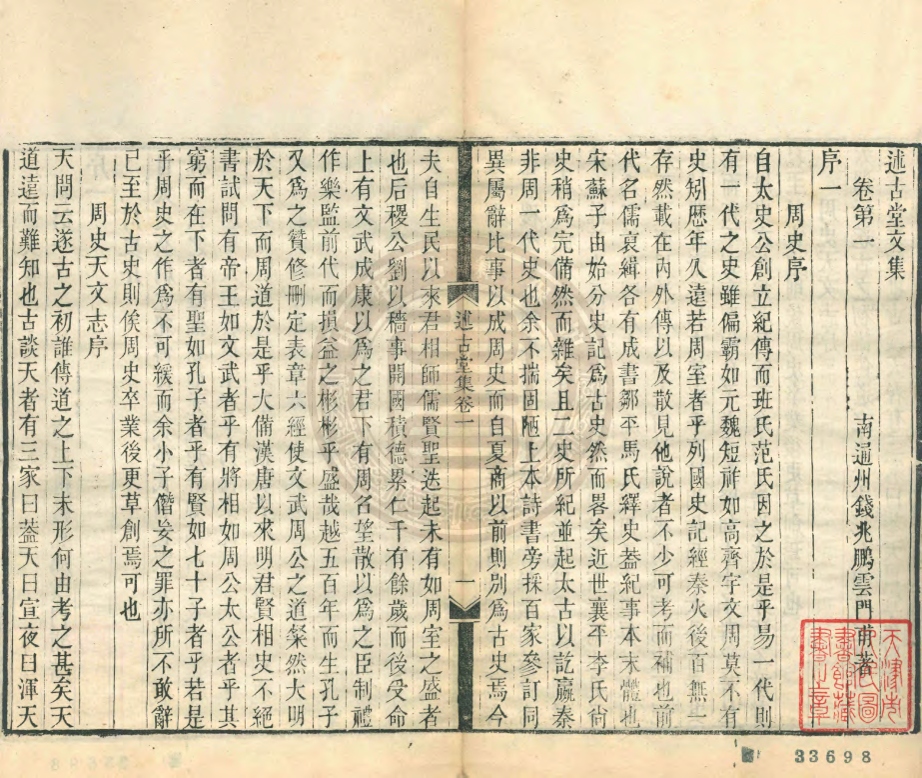 述古堂文集
卷第一
南通州錢兆鵬雲門甫著
序一
周史序
自太史公創立紀傳而班氏范氏因之於是乎易一代則
有一代之史雖偏霸如元魏短祚如高齊宇文周莫不有
史矧歷年久遠若周室者乎列國史記經秦火後百無一
存然載在內外傳以及散見他說者不少可考而補也前
代名儒裒緝各有成書鄒平馬氏繹史葢紀事本末體也
宋蘇子由始分史記爲古史然而畧矣近世襄平李氏尙
史稍爲完備然而雜矣且二史所紀並起太古以訖嬴秦
非周一代史也余不揣固陋上本詩書旁採百家參訂同
異屬辭比事以成周史而自夏商以前則別爲古史焉今
述古堂集卷一
一
夫自生民以來君相師儒賢聖迭起未有如周室之盛者
也后稷公劉以穡事開國積德累仁千有餘歲而後受命
上有文武成康以爲之君下有周名望散以爲之臣制禮
作樂監前代而損益之彬彬乎盛哉越五百年而生孔子
又爲之贊修刪定表章六經使文武周公之道粲然大明
於天下而周道於是乎大備漢唐以來明君賢相史不絕
書試問有帝王如文武者乎有將相如周公太公者乎其
窮而在下者有聖如孔子者乎有賢如七十子者乎若是
乎周史之作爲不可緩而余小子僭妄之罪亦所不敢辭
已至於古史則俟周史卒業後更草創焉可也
周史天文志序
天問云遂古之初誰傳道之上下未形何由考之甚矣天
道遠而難知也古談天者有三家曰葢天曰宣夜曰渾天
天津市
人民圖
書館藏
書之章
33698